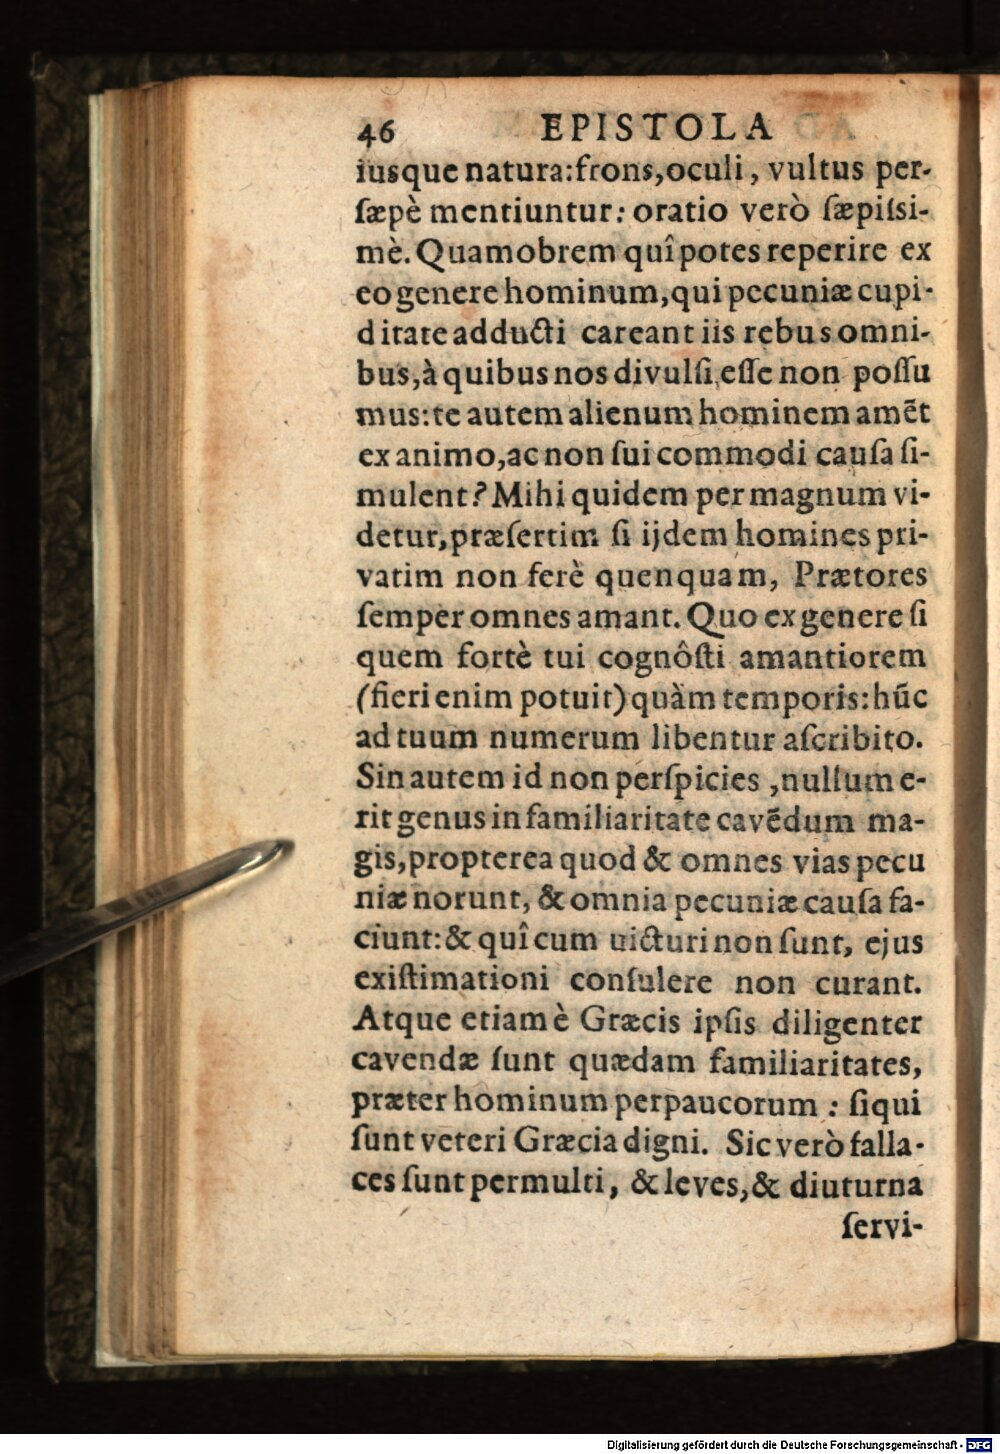 46 EPISTOLA
iusque natura: frons, oculi, vultus per-
ſæpè mentiuntur: oratio verò ſæpiſsi-
mè. Quamobrem quî potes reperire ex
eo genere hominum, qui pecuniæ cupi-
ditate adducti careant iis rebus omni-
bus, à quibus nos divulſi eſſe non poſſu
mus: te autem alienum hominem amẽt
ex animo, ac non ſui commodi cauſa ſi-
mulent? Mihi quidem permagnum vi-
detur, præſertim ſi ijdem homines pri-
vatim non ferè quenquam, Prætores
ſemper omnes amant. Quo ex genere ſi
quem fortè tui cognôſti amantiorem
(fieri enim potuit) quàm temporis: hũc
ad tuum numerum libentur aſcribito.
Sin autem id non perſpicies, nullum e-
rit genus in familiaritate cavẽdum ma-
gis, propterea quod & omnes vias pecu
niæ norunt, & omnia pecuniæ cauſa fa-
ciunt: & quî cum uicturi non ſunt, ejus
exiſtimationi conſulere non curant.
Atque etiam è Græcis ipſis diligenter
cavendæ ſunt quædam familiaritates,
præter hominum perpaucorum: ſiqui
ſunt veteri Græcia digni. Sic verò falla-
ces ſunt permulti, & leves, & diuturna
ſervi-
Digitalisierung gefördert durch die Deutsche Forschungsgemeinschaft - DFG